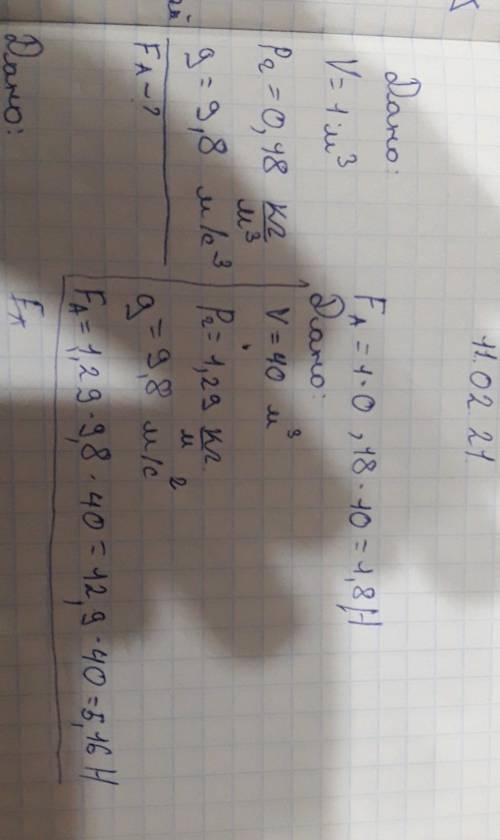 11.02 21
Дано:
V = 1 м³
Рг = 0,18 кг/м³
g = 9,8 м/с³
FА – ?
FА = 1·0,18·10 = 1,8 Н
Дано:
V = 40 м³
Рг = 1,29 кг/м
g = 9,8 м/с²
FА = 1,29·9,8·40 = 12,9·40 = 5,16 Н
Дано:
FА